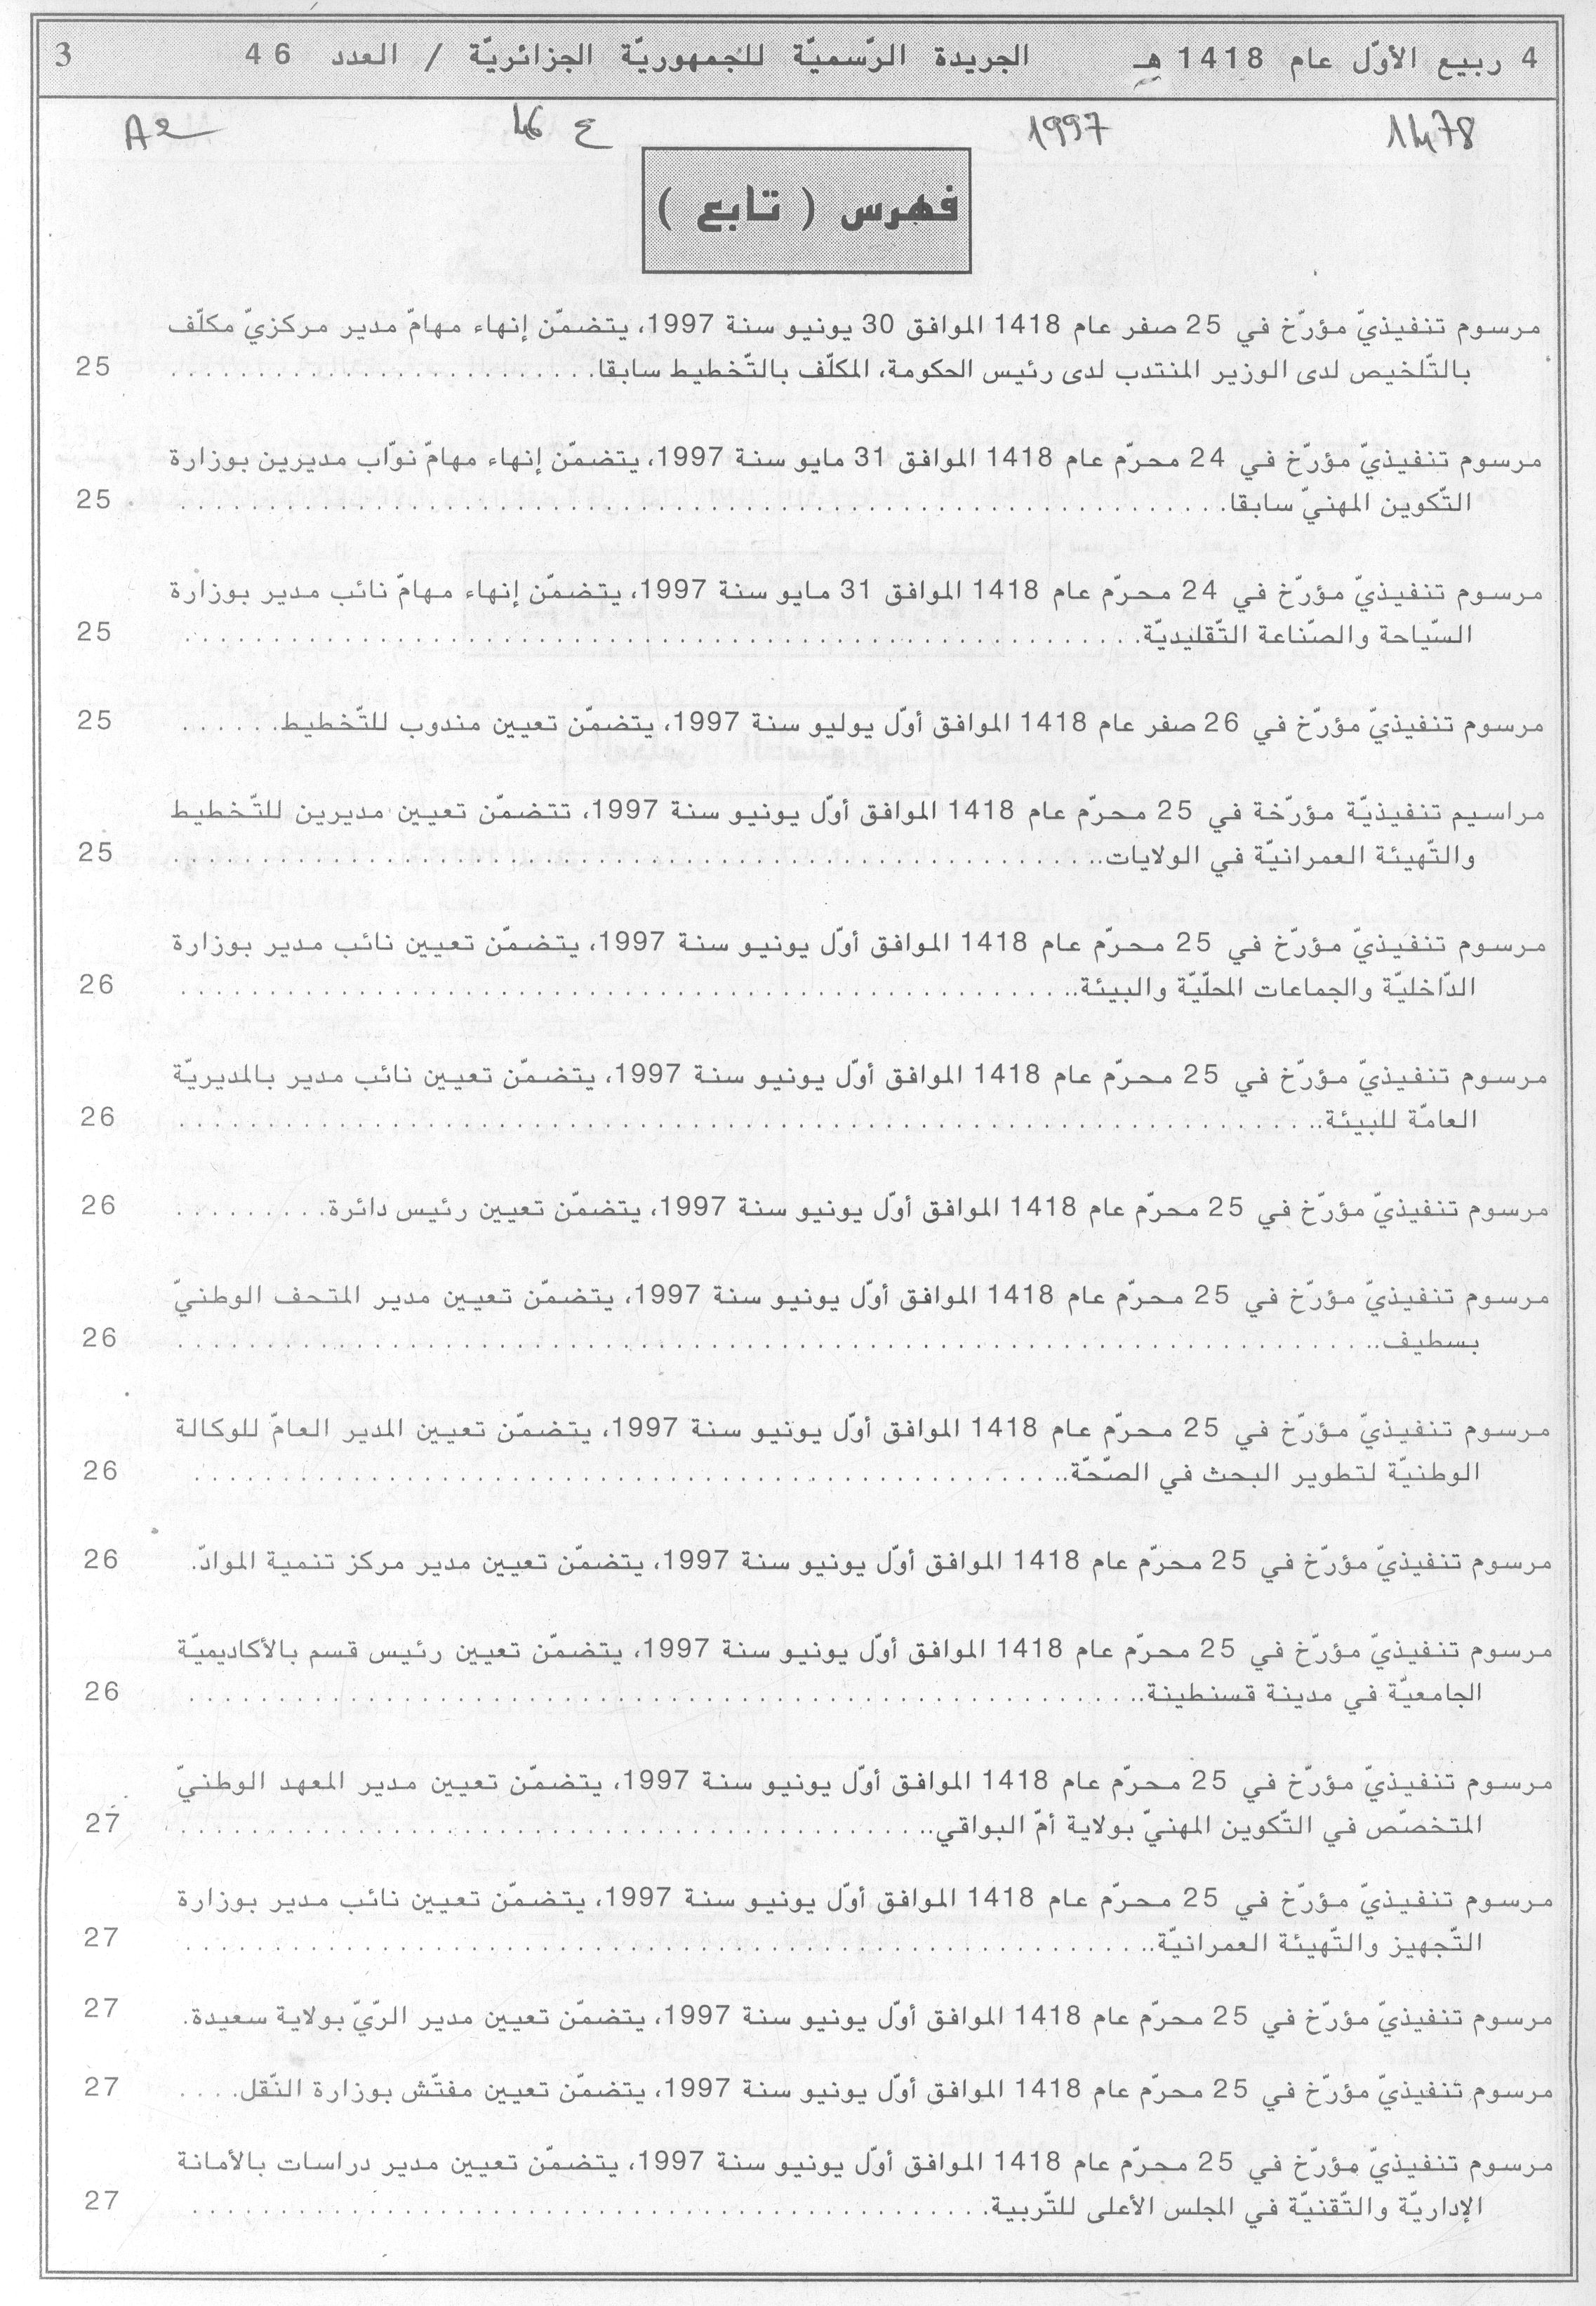 4 ربيع الأوّل عام 1418 هـ الجريدة الرّسميّة للجمهوريّة الجزائريّة / العدد 46 3
1478 1997 ع 46 A2
فهرس ( تابع )
مرسوم تنفيذيّ مؤرّخ في 25 صفر عام 1418 الموافق 30 يونيو سنة 1997، يتضمّن إنهاء مهامّ مدير مركزيّ مكلّف
بالتّلخيص لدى الوزير المنتدب لدى رئيس الحكومة، المكلّف بالتّخطيط سابقا. 25
مرسوم تنفيذيّ مؤرّخ في 24 محرّم عام 1418 الموافق 31 مايو سنة 1997، يتضمّن إنهاء مهامّ نوّاب مديرين بوزارة
التّكوين المهنيّ سابقا. 25
مرسوم تنفيذيّ مؤرّخ في 24 محرّم عام 1418 الموافق 31 مايو سنة 1997، يتضمّن إنهاء مهامّ نائب مدير بوزارة
السّياحة والصّناعة التّقليديّة. 25
مرسوم تنفيذيّ مؤرّخ في 26 صفر عام 1418 الموافق أوّل يوليو سنة 1997، يتضمّن تعيين مندوب للتّخطيط. 25
مراسيم تنفيذيّة مؤرّخة في 25 محرّم عام 1418 الموافق أوّل يونيو سنة 1997، تتضمّن تعيين مديرين للتّخطيط
والتّهيئة العمرانيّة في الولايات. 25
مرسوم تنفيذيّ مؤرّخ في 25 محرّم عام 1418 الموافق أوّل يونيو سنة 1997، يتضمّن تعيين نائب مدير بوزارة
الدّاخليّة والجماعات المحلّيّة والبيئة. 26
مرسوم تنفيذيّ مؤرّخ في 25 محرّم عام 1418 الموافق أوّل يونيو سنة 1997، يتضمّن تعيين نائب مدير بالمديريّة
العامّة للبيئة. 26
مرسوم تنفيذيّ مؤرّخ في 25 محرّم عام 1418 الموافق أوّل يونيو سنة 1997، يتضمّن تعيين رئيس دائرة. 26
مرسوم تنفيذيّ مؤرّخ في 25 محرّم عام 1418 الموافق أوّل يونيو سنة 1997، يتضمّن تعيين مدير المتحف الوطنيّ
بسطيف. 26
مرسوم تنفيذيّ مؤرّخ في 25 محرّم عام 1418 الموافق أوّل يونيو سنة 1997، يتضمّن تعيين المدير العامّ للوكالة
الوطنيّة لتطوير البحث في الصّحّة. 26
مرسوم تنفيذيّ مؤرّخ في 25 محرّم عام 1418 الموافق أوّل يونيو سنة 1997، يتضمّن تعيين مدير مركز تنمية الموادّ. 26
مرسوم تنفيذيّ مؤرّخ في 25 محرّم عام 1418 الموافق أوّل يونيو سنة 1997، يتضمّن تعيين رئيس قسم بالأكاديميّة
الجامعيّة في مدينة قسنطينة. 26
مرسوم تنفيذيّ مؤرّخ في 25 محرّم عام 1418 الموافق أوّل يونيو سنة 1997، يتضمّن تعيين مدير المعهد الوطنيّ
المتخصّص في التّكوين المهنيّ بولاية أمّ البواقي. 27
مرسوم تنفيذيّ مؤرّخ في 25 محرّم عام 1418 الموافق أوّل يونيو سنة 1997، يتضمّن تعيين نائب مدير بوزارة
التّجهيز والتّهيئة العمرانيّة. 27
مرسوم تنفيذيّ مؤرّخ في 25 محرّم عام 1418 الموافق أوّل يونيو سنة 1997، يتضمّن تعيين مدير الرّيّ بولاية سعيدة. 27
مرسوم تنفيذيّ مؤرّخ في 25 محرّم عام 1418 الموافق أوّل يونيو سنة 1997، يتضمّن تعيين مفتّش بوزارة النّقل. 27
مرسوم تنفيذيّ مؤرّخ في 25 محرّم عام 1418 الموافق أوّل يونيو سنة 1997، يتضمّن تعيين مدير دراسات بالأمانة
الإداريّة والتّقنيّة في المجلس الأعلى للتّربية. 27